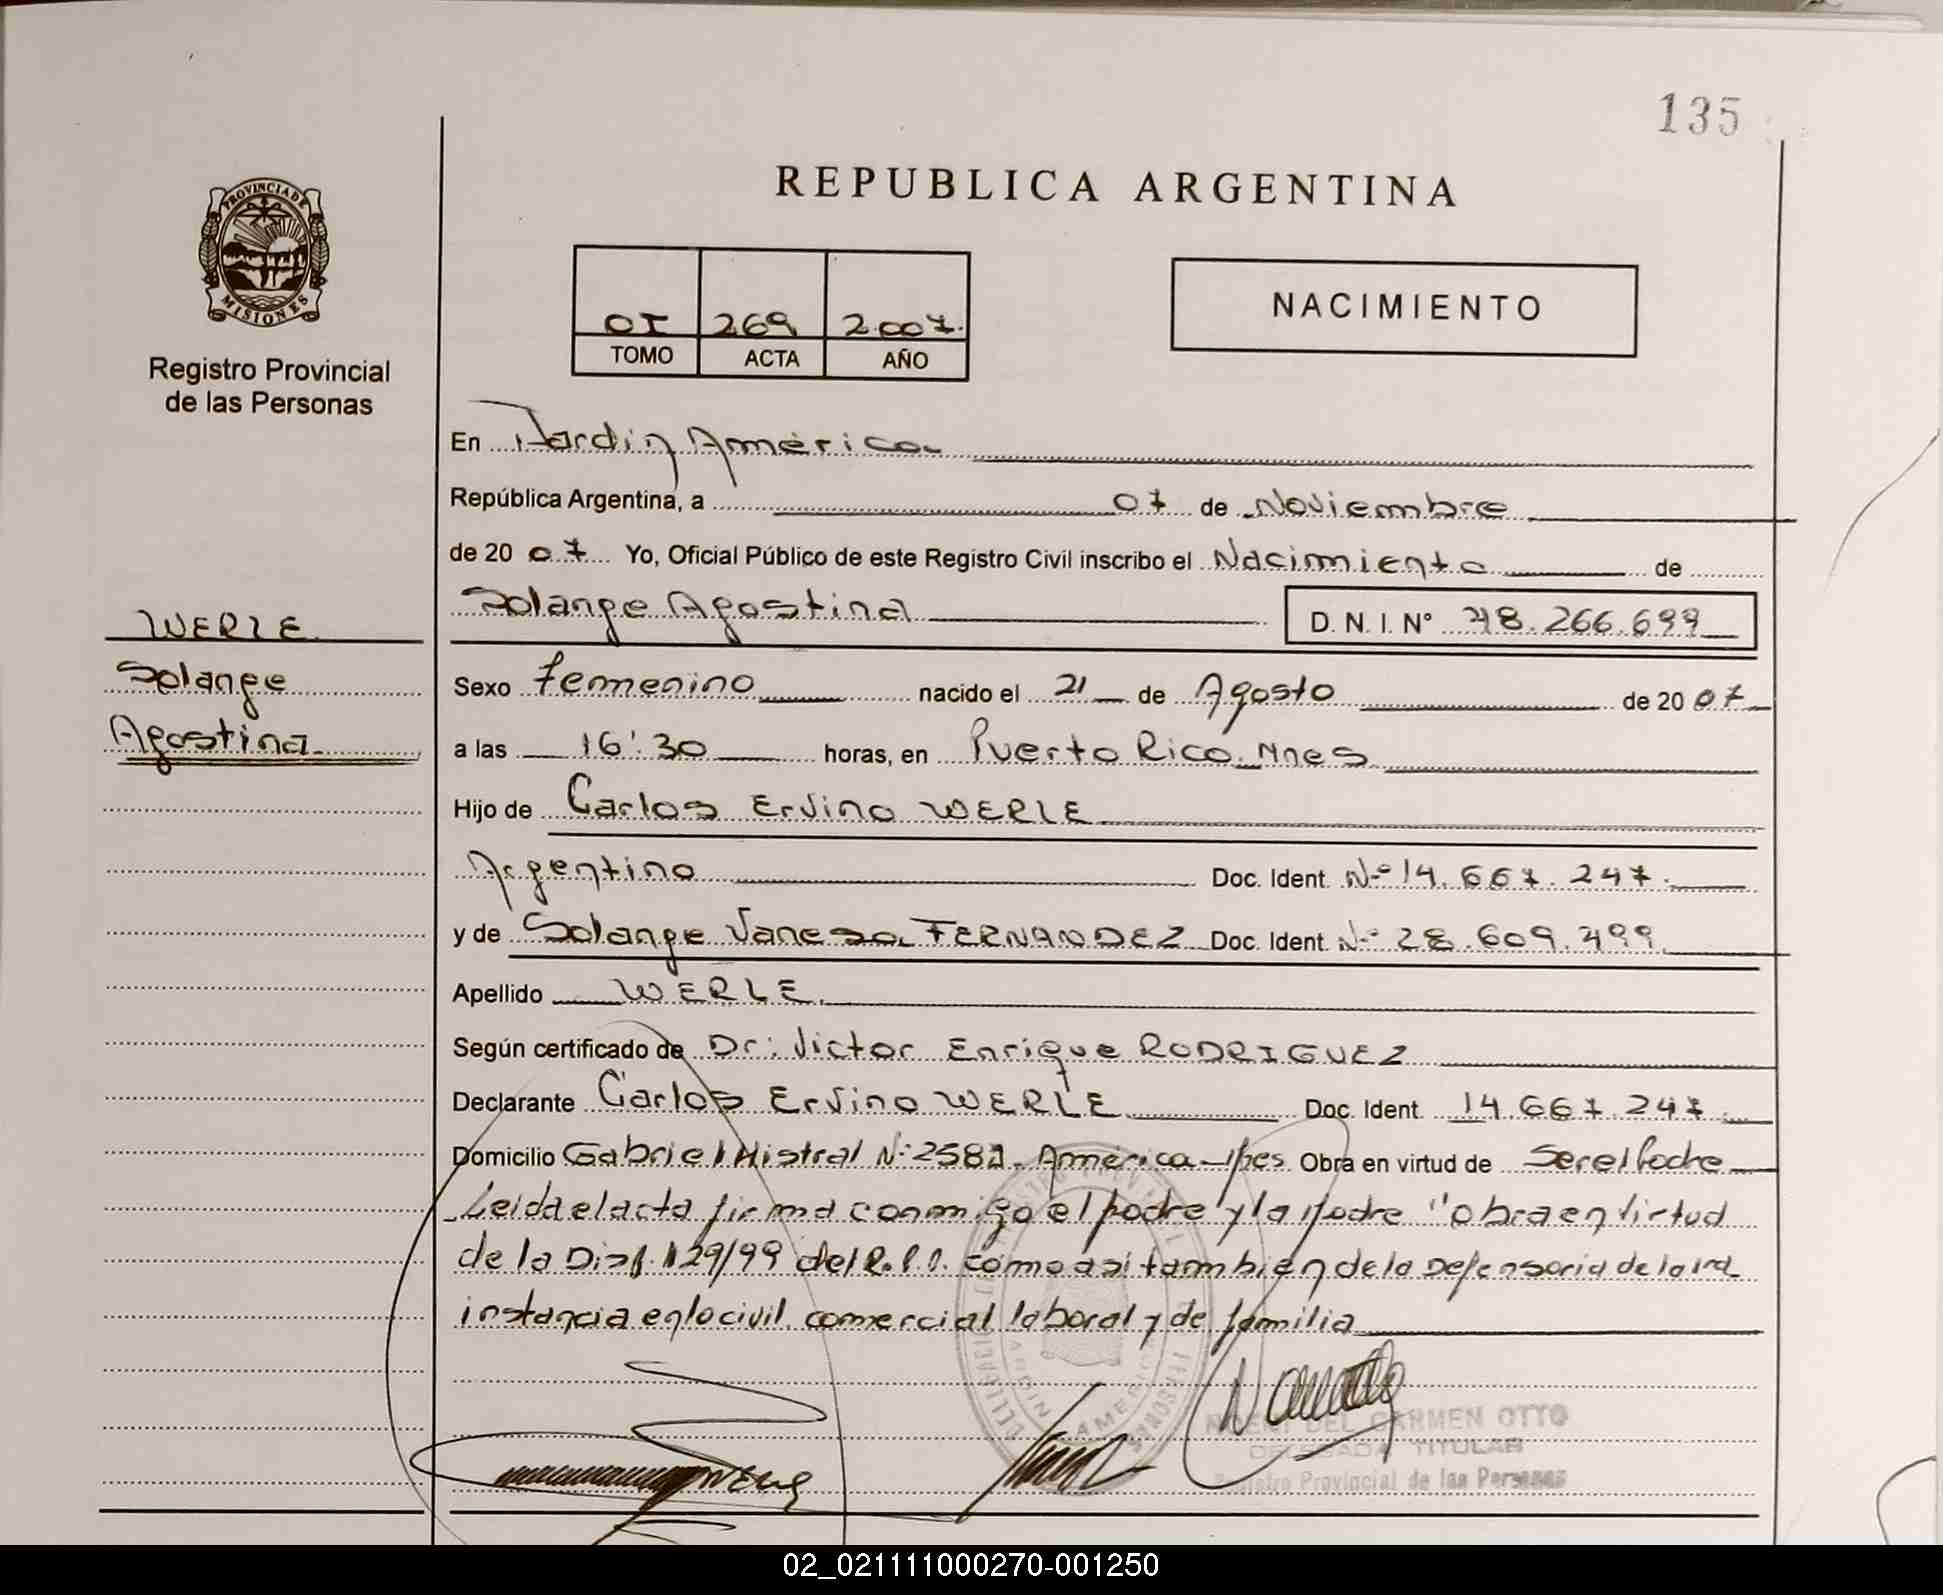 135
REPUBLICA ARGENTINA
PROVINCIA DE
MISIONES
Registro Provincial
de las Personas
OI 269 2.007.
TOMO ACTA AÑO
NACIMIENTO
En Jardin América
República Argentina, a 07 de Noviembre
de 20 07 Yo, Oficial Público de este Registro Civil inscribo el Nacimiento de
Solange Agostina D. N. I. N° 48.266.699
WERLE
Solange
Agostina
Sexo Femenino nacido el 21 de Agosto de 20 07
a las 16:30 horas, en Puerto Rico Mnes
Hijo de Carlos Ervino WERLE
Argentino Doc. Ident. Nº 14.667.247.
y de Solange Vanesa FERNANDEZ Doc. Ident. Nº 28.609.499
Apellido WERLE.
Según certificado de Dr: Victor Enrique RODRIGUEZ
Declarante Carlos Ervino WERLE Doc. Ident. 14.667.247.
Domicilio Gabriel Mistral Nº 2581 América Obra en virtud de Ser el Padre
Leida el acta firma conmigo el padre y la Madre "obra en virtud
de la Disp. 129/99 del R.P.P. como asi tambien de la Defensoria de la 1ra
instancia en lo civil, comercial laboral y de familia
DEL CARMEN OTTO
DELEGADA TITULAR
Registro Provincial de las Personas
02_021111000270-001250